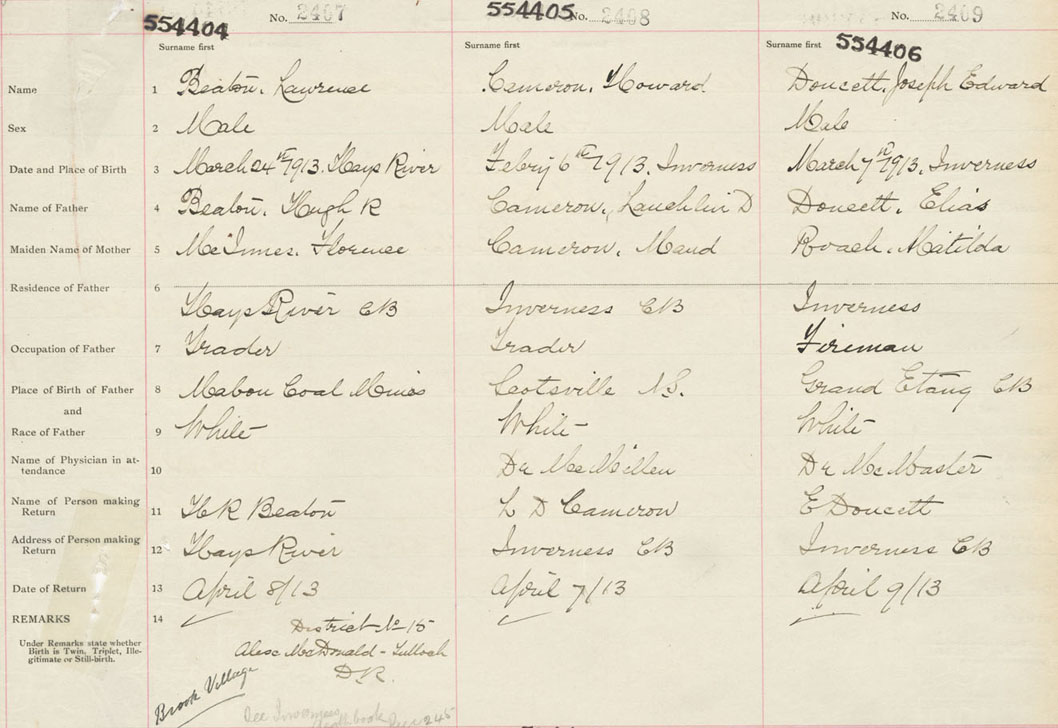 554404 No. 2407 554405 No. 2408 554406 No. 2409
Surname first Surname first Surname first
Name 1 Beaton, Lawrence Cameron, Howard Doucett, Joseph Edward
Sex 2 Male Male Male
Date and Place of Birth 3 March 24th 1913. Hays River Febry 6th 1913. Inverness March 7th 1913. Inverness
Name of Father 4 Beaton, Hugh R Cameron, Lauchlin D Doucett, Elias
Maiden Name of Mother 5 McInnes, Florence Cameron, Maud Roach, Matilda
Residence of Father 6
Hays River CB Inverness CB Inverness
Occupation of Father 7 Trader Trader Fireman
Place of Birth of Father 8 Mabou Coal Mines Scotsville N.S. Grand Etang CB
and
Race of Father 9 White White White
Name of Physician in at-
tendance 10 Dr McMillen Dr McMaster
Name of Person making
Return 11 H R Beaton L D Cameron E Doucett
Address of Person making
Return 12 Hays River Inverness CB Inverness CB
Date of Return 13 April 8/13 April 7/13 April 9/13
REMARKS 14
Under Remarks state whether
Birth is Twin, Triplet, Ille-
gitimate or Still-birth.
District No 15
Alexr McDonald - Tulloch
D.R.
Brook Village
See Inverness
book 245